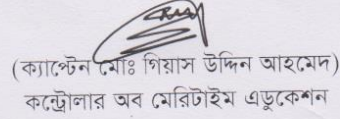 (ক্যাপ্টেন মোঃ গিয়াস উদ্দিন আহমেদ)
কন্ট্রোলার অব মেরিটাইম এডুকেশন